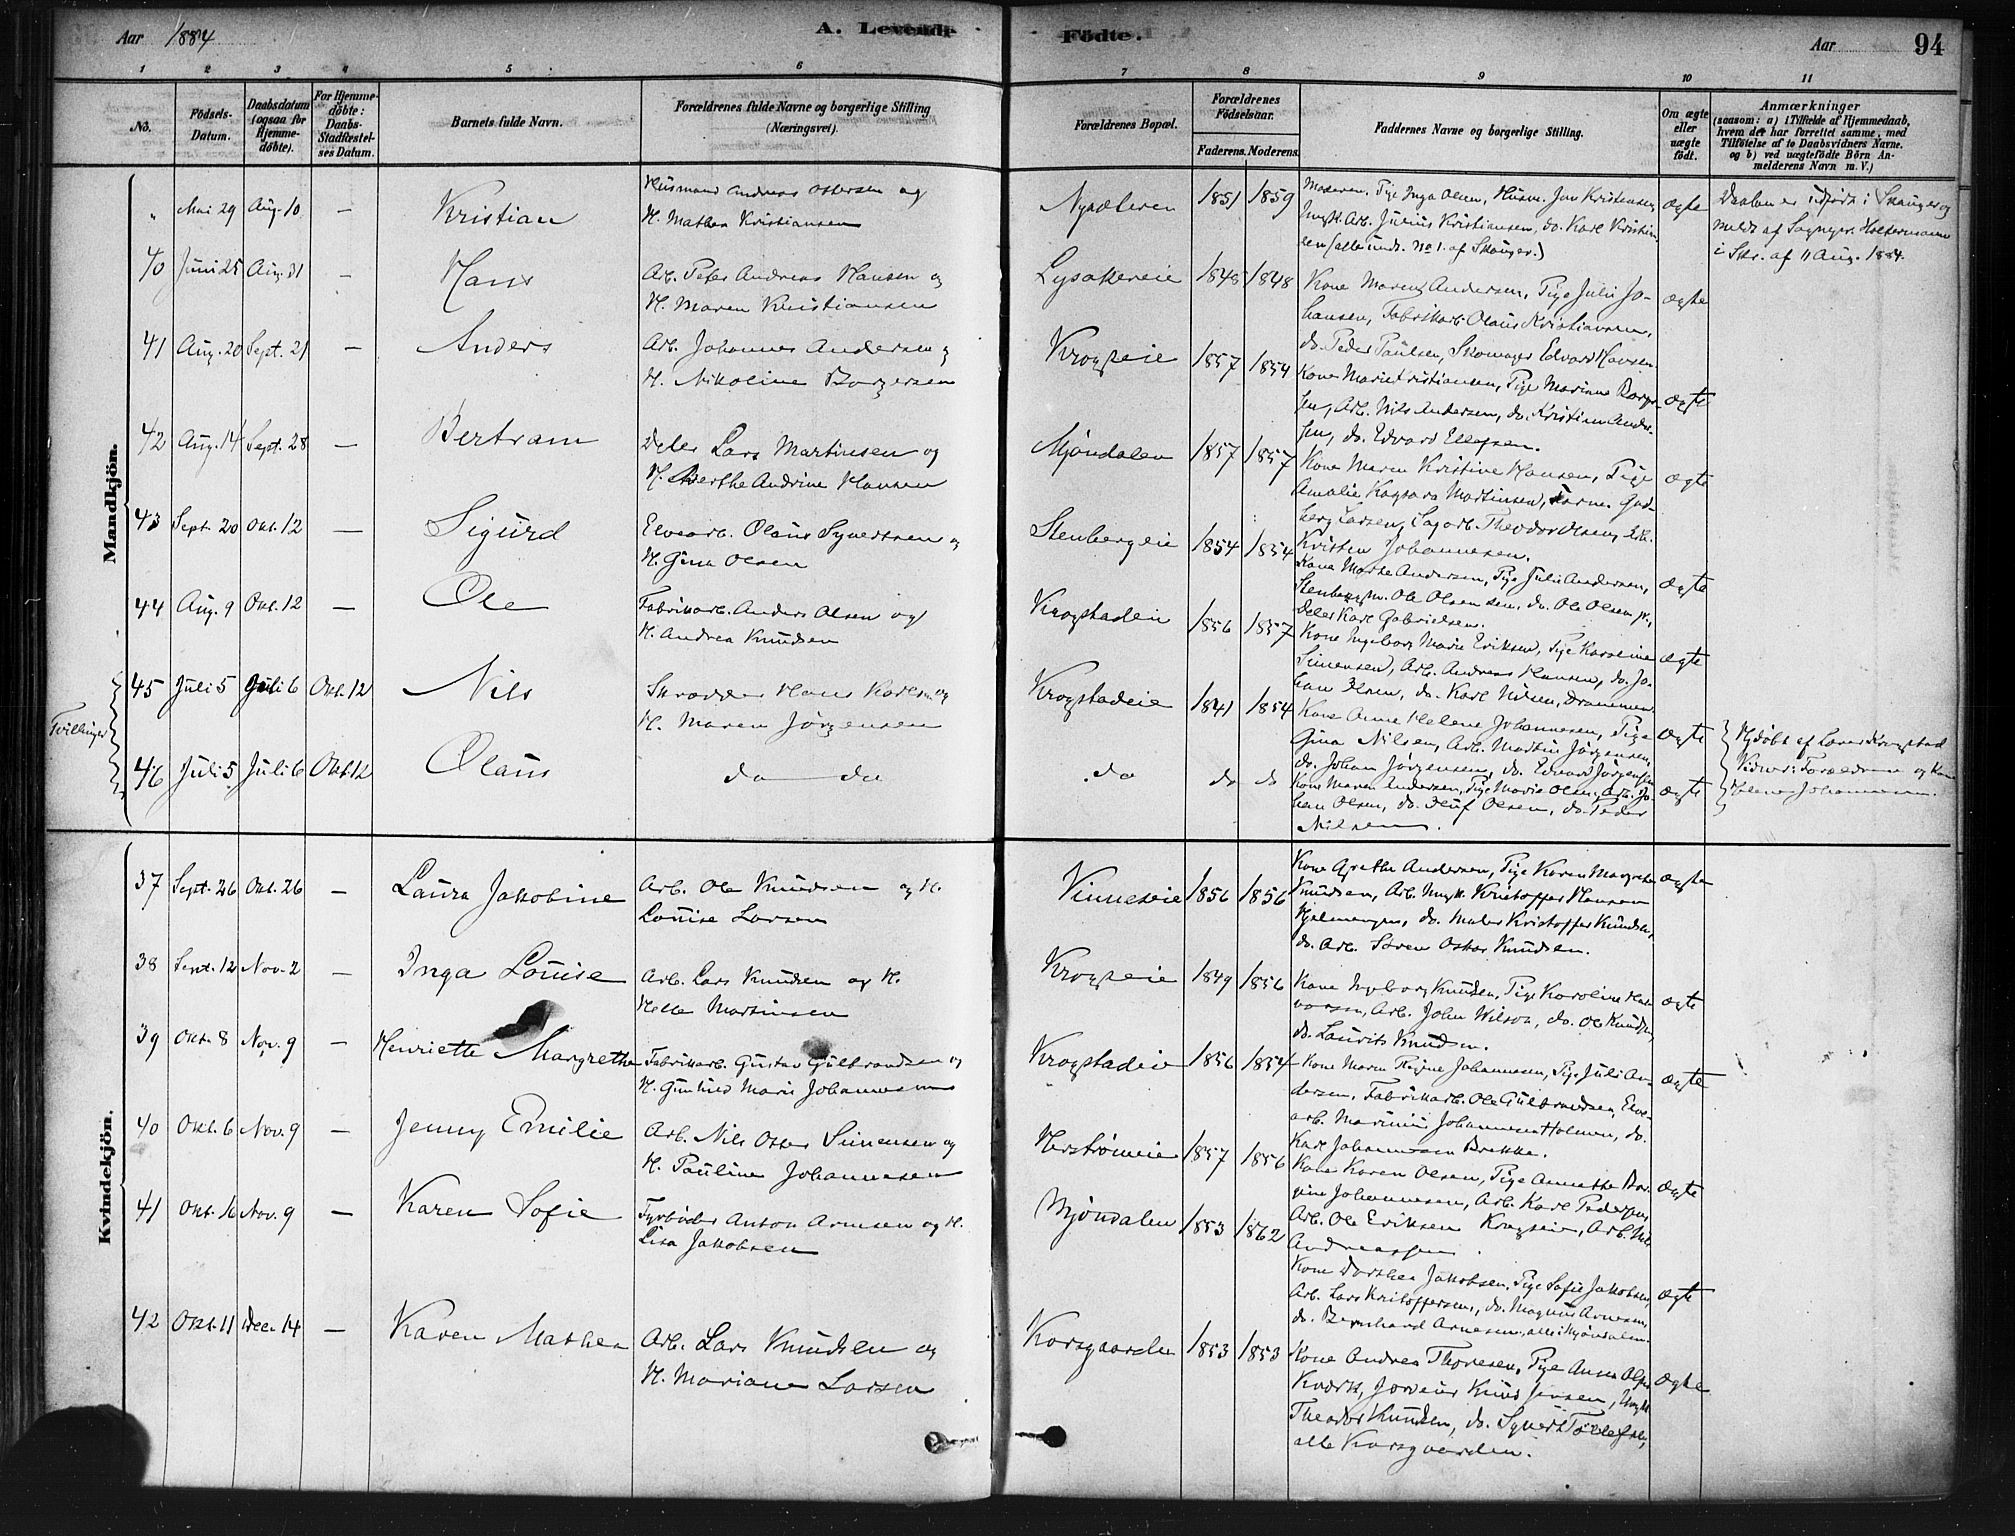 Aar 1884
A. Levende
Födte.
Aar
94
1 2 3 4 5 6 7 8 9 10 11
No.
Födsels-Datum.
Daabsdatum (ogsaa for Hjemme-döbte).
For Hjemme-döbte: Daabs-Stadfæstel-ses Datum.
Barnets fulde Navn.
Forældrenes fulde Navne og borgerlige Stilling (Næringsvei).
Forældrenes Bopæl.
Forældrenes Födselsaar.
Faderens. Moderens.
Faddernes Navne og borgerlige Stilling.
Om ægte eller uægte födt.
Anmærkninger
(saasom: a) i Tilfælde af Hjemmedaab,
hvem der har forrettet samme, med
Tilföielse af to Daabsvidners Navne.
og b) ved uægtefödte Börn An-
melderens Navn m. V.)
Mandkjön.
" Mai 29 Aug. 10 — Kristian
Husmand Andreas Ottersen og
H. Mathea Kristiansen
1851 1859
Moderen. Pige Inga Olsen, Husm. Jan Kristensen
Ungk. Arb. Julius Kristiansen, do. Karl Kristian-
sen (alle undt. No 1. af Skouger.)
ægte
Daaben er udført i Skauger og
meldt af Sogneprest
i Skr. af 11 Aug. 1884.
40 Juni 25 Aug. 31 — Hans
Arb. Peter Andreas Hansen og
H. Maren Kristiansen
Lysakereie 1848 1848
Kone Maren Andersen, Pige Julie Jo-
hansen, Fabrikarb. Olaus Kristiansen,
do. Peder Paulsen, Skomager Edvard Hansen
ægte
41 Aug. 20 Sept. 21 — Anders
Arb. Johannes Andersen og
H. Nikoline Borgersen
Krogseie 1857 1854
Kone Marie Kristiansen, Pige Mariane Borger-
sen, Arb. Nils Andersen, do. Kristian Ander-
sen, do. Edvard Ellefsen.
ægte
42 Aug. 14 Sept. 28 — Bertram
Deler Lars Martinsen og
H. Berthe Andrine Hansen
Mjøndalen 1857 1857
Kone Maren Kristine Hansen, Pige
Amalie Kaspara Martinsen, Gud-
berg Larsen, Sagarb. Theodor Olsen,
Kristen Johannesen.
ægte
43 Sept. 20 Okt. 12 — Sigurd
Elvearb. Olaus Syvertsen og
H. Gina Olsen
Stenbergeie 1854 1854
Kone Marthe Andersen, Pige Julie Andersen,
Ole Olsen sen., do. Ole Olsen jr.,
Deler Karl Gabrielsen.
ægte
44 Aug. 9 Okt. 12 — Ole
Fabrikarb. Anders Olsen og
H. Andrea Knudsen
Krogstadeie 1856 1857
Kone Ingeborg Marie Eriksen, Pige Karoline
Simensen, Arb. Andreas Hansen, do. Jo-
han Olsen, do. Karl Nilsen, Drammen
ægte
Tvillinger
45 Juli 5 Juli 6 Okt. 12 Nils
Skrædder Hans Karlsen og
H. Maren Jørgensen
Krogstadeie 1841 1854
Kone Anne Helene Johannesen, Pige
Gina Nilsen, Arb. Martin Jörgensen,
do. Johan Jørgensen, do. Edvard Jørgensen
ægte
Hjdøbt af Lærer Krogstad
Vidner: Forældrene og Kone
Helene Johannesen.
46 Juli 5 Juli 6 Okt. 12 Olaus
do do
do do do
Kone Maren Andersen, Pige Marie Olsen, Arb. Jo-
han Olsen, do. Oluf Olsen, do. Peder
Nilsen.
ægte
Kvindekjön.
37 Sept. 26 Okt. 26 — Laura Jakobine
Arb. Ole Knudsen og H.
Louise Larsen
Vinneseie 1856 1856
Kone Grethe Andersen, Pige Karen Margrethe
Knudsen, Arb. Ungk. Kristoffer Hansen
do. Maler Kristoffer Knudsen,
do. Arb. Søren Oskar Knudsen.
ægte
38 Sept. 12 Nov. 2 — Inga Louise
Arb. Lars Knudsen og H.
Helle Martinsen
Krogseie 1849 1856
Kone Ingeborg Knudsen, Pige Karoline Hal-
vorsen, Arb. John Wilson, do. Ole Knudsen,
do. Laurits Knudsen.
ægte
39 Okt. 8 Nov. 9 — Henriette Margrethe
Fabrikarb. Gustav Gulbrandsen og
H. Gunhild Marie Johannesen
Krogstadeie 1856 1854
Kone Maren Regine Johannesen, Pige Julie An-
dersen, Fabrikarb. Ole Gulbrandsen, Elve-
arb. Marinius Johannesen Holmen, do.
Karl Johannesen Brekke.
ægte
40 Okt. 6 Nov. 9 — Jenny Emilie
Arb. Nils Otter Simensen og
H. Pauline Johannesen
Herstrømeie 1857 1856
Kone Karen Olsen, Pige Annette Bor-
gine Johannesen, Arb. Karl Pedersen,
Arb. Ole Eriksen Krogseie, Arb. Nils
Andreassen.
ægte
41 Okt. 16 Nov. 9 — Karen Sofie
Fyrbøder Anton Arnesen og H.
Lisa Jakobsen
Mjøndalen 1853 1862
Kone Dorthea Jakobsen, Pige Sofie Jakobsen,
Arb. Lars Kristoffersen, do. Magnus Arnesen,
do. Bernhard Arnesen, alle Mjøndalen.
ægte
42 Okt. 11 Dec. 14 — Karen Mathea
Arb. Lars Knudsen og
H. Mariane Larsen
Korsgaarden 1853 1853
Kone Andrea Thoresen, Pige Anna Olsen
Kværk, Knud Jensen, Ungk.
Theodor Knudsen, do. Syvert Tollefsen,
alle Korsgaarden.
ægte